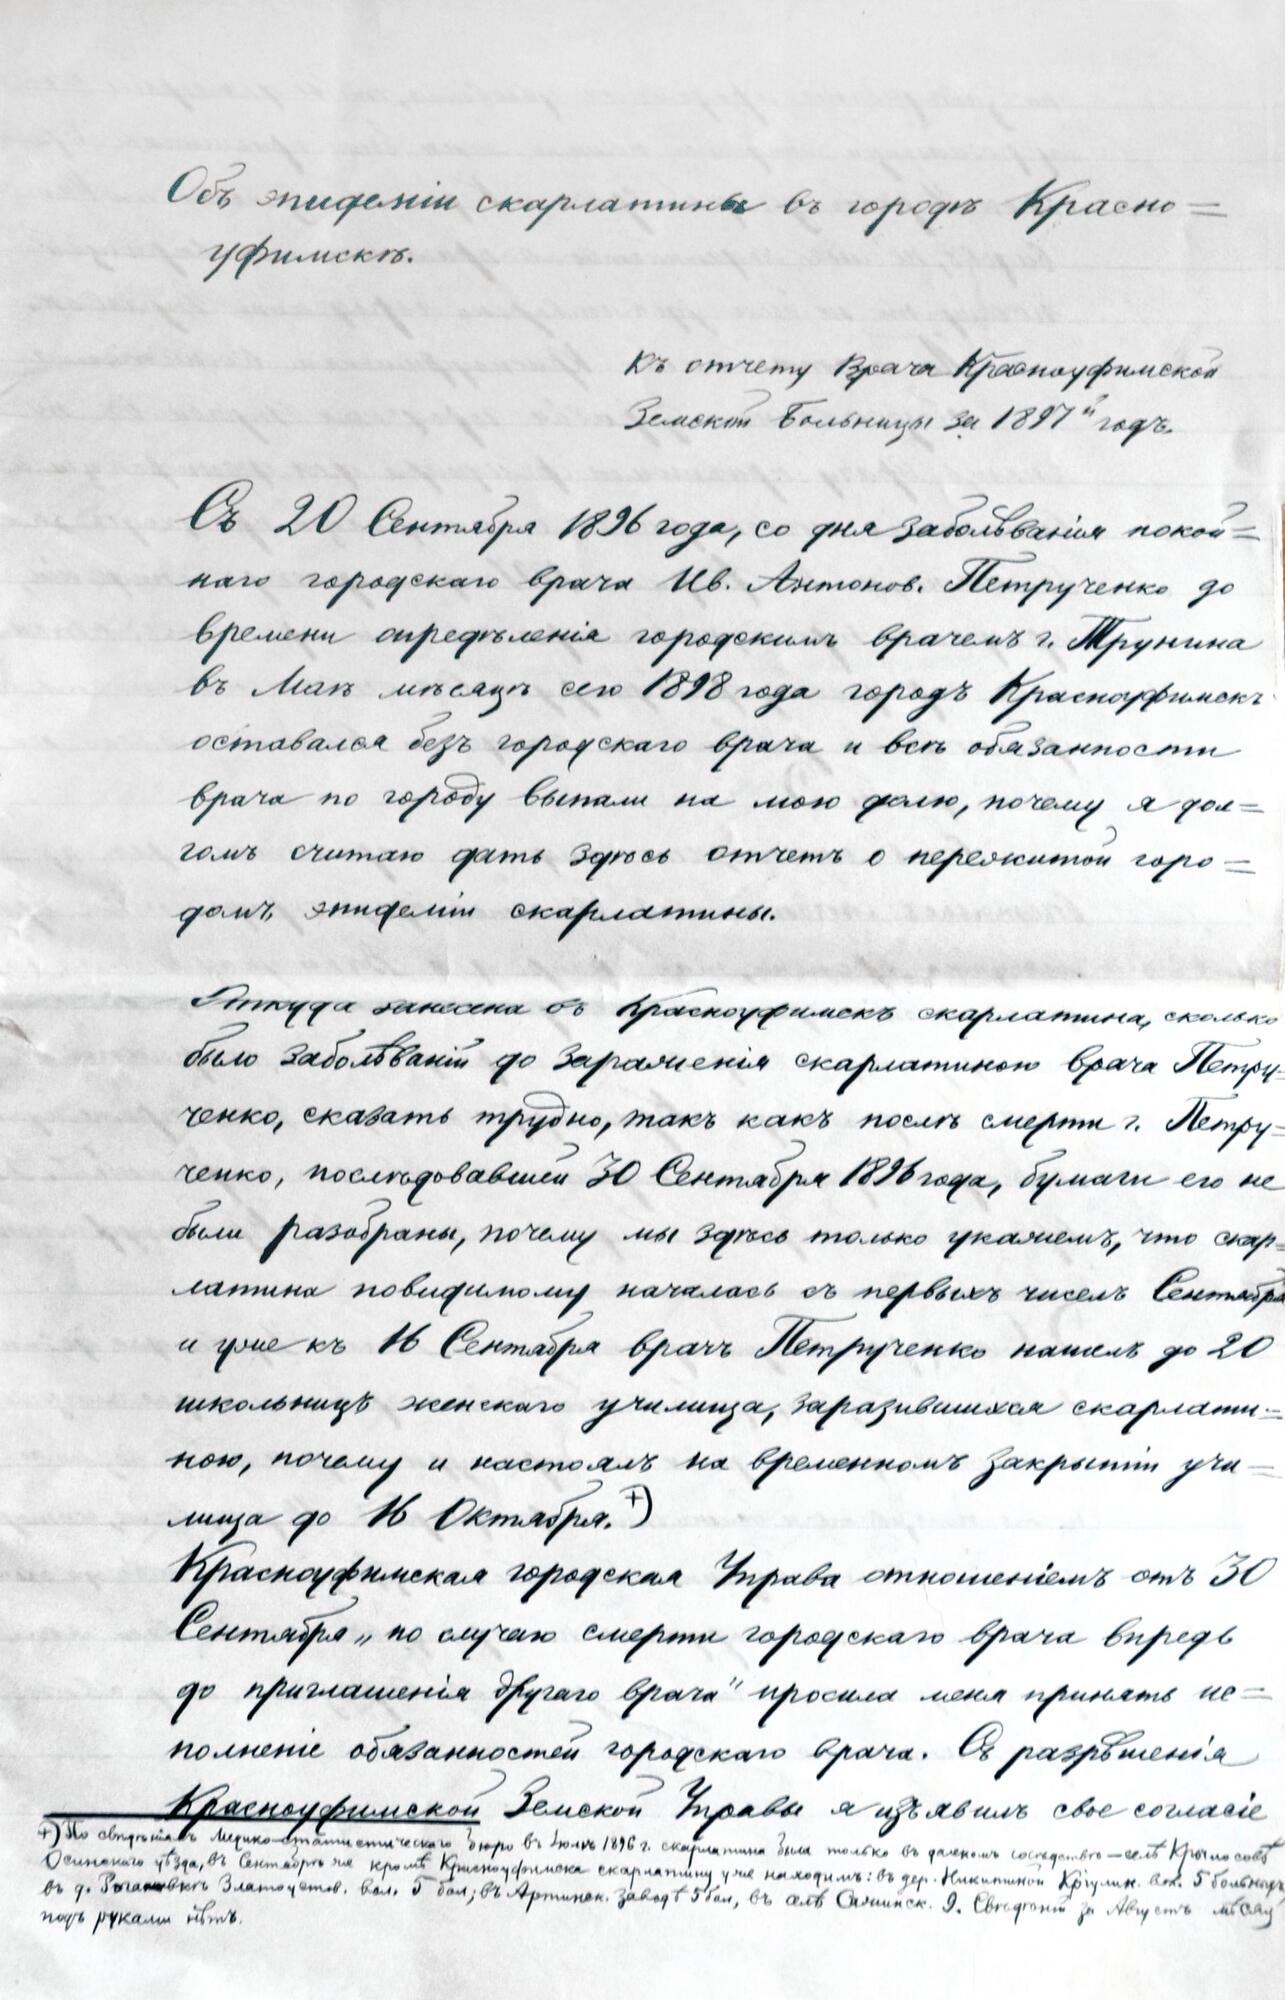 Объ эпидеміи скарлатины въ городѣ Красно=
уфимскѣ.
Къ отчету Врача Красноуфимской
Земской Больницы за 1897й годъ.
Съ 20 Сентября 1896 года, со дня заболѣванія покой=
наго городскаго врача Ив. Антонов. Петрученко до
времени опредѣленія городскимъ врачемъ г. Трунина
въ Маѣ мѣсяцѣ сего 1898 года городъ Красноуфимскъ
оставался безъ городскаго врача и всѣ обязанности
врача по городу выпали на мою долю, почему я дол=
гомъ считаю дать здѣсь отчетъ о пережитой горо=
домъ эпидеміи скарлатины.
Откуда занесена въ Красноуфимскъ скарлатина, сколько
было заболѣваній до зараженія скарлатиною врача Петру=
ченко, сказать трудно, такъ какъ послѣ смерти г. Петру=
ченко, послѣдовавшей 30 Сентября 1896 года, бумаги его не
были разобраны, почему мы здѣсь только укажемъ, что скар=
латина повидимому началась съ первыхъ чиселъ Сентября
и уже къ 16 Сентября врачъ Петрученко нашелъ до 20
школьницъ женскаго училища, заразившихся скарлати=
ною, почему и настоялъ на временномъ закрытіи учи=
лища до 16 Октября.+)
Красноуфимская городская Управа отношеніемъ отъ 30
Сентября „по случаю смерти городскаго врача впредь
до приглашенія другаго врача" просила меня принять ис=
полненіе обязанностей городскаго врача. Съ разрѣшенія
Красноуфимской Земской Управы я изъявилъ свое согласіе
+) По свѣдѣніямъ Медико-статистическаго Бюро въ Іюлѣ 1896 г. скарлатина была только въ далекомъ сосѣдствѣ — селѣ Крылосовѣ
Осинскаго уѣзда, въ Сентябрѣ же кромѣ Красноуфимска скарлатину уже находимъ: въ дер. Никитиной вол. 5 больныхъ,
въ д. Златоустов. вол. 5 бол; въ Артинск. заводѣ 5 бол, въ селѣ Сажинск. 9. Свѣдѣній за Августъ мѣсяц
подъ руками нѣтъ.